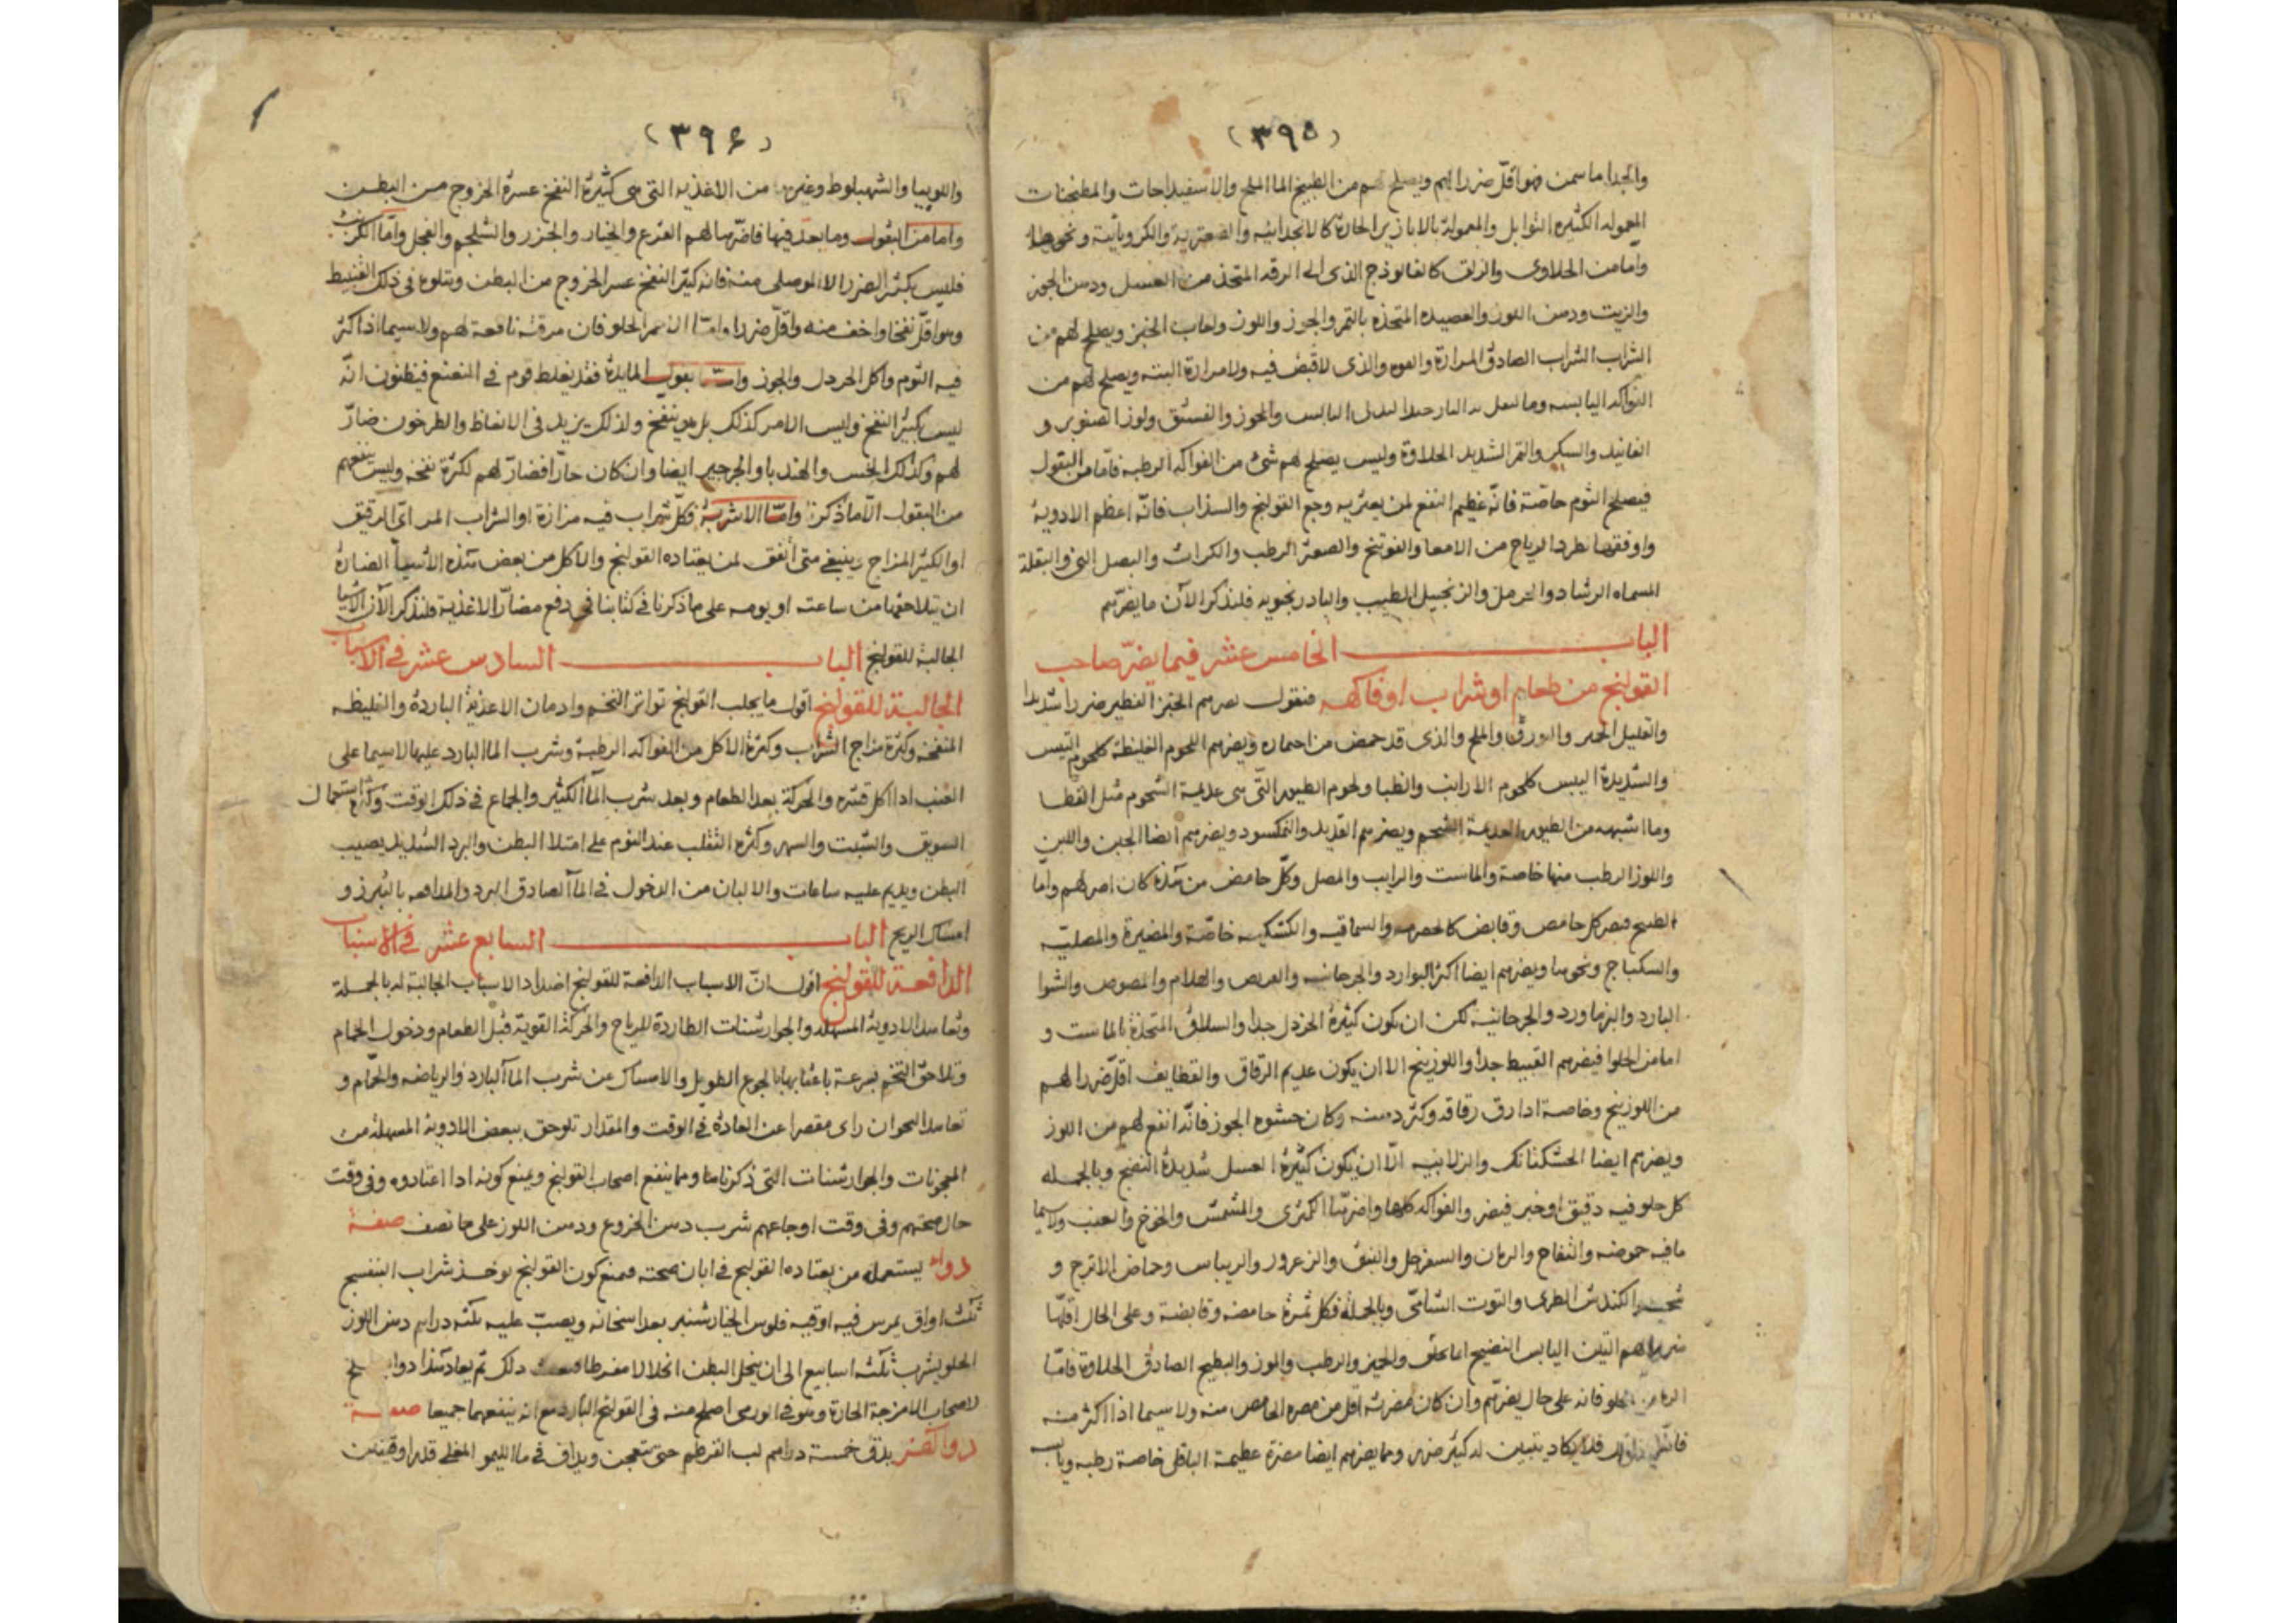 (٣٩٥)
والجدا ما سمن فهو اقلّ ضررا لهم ويصلح لهم من الطبيخ الماالملح والاسفيداجات والمطجنات
المعموله الكثيره التوابل والمعمولة بالابازير الحارة كالانجدانيه والصعتريه والكرويائية ونحوها
وامامن الحلاوى والزلق كالفالوذج الذى الى الرقه المتخذ من العسل ودهن الجوز
والزيت ودهن اللوز والعصيده المتخذه بالتمر والجوز واللوز ولعاب الخبز ويصلح لهم من
الشراب الشراب الصادق المرارة والذى لاقبض فيه ولامرارة البته ويصلح لهم من
الفواكه اليابسه وما والجوز والفستق ولوز الصنوبر و
الفانيد والسكر والتمر الشديد الحلاوة وليس يصلح لهم شئ من الفواكه الرطبه فامامن البقول
فيصلح الثوم خاصّة فانّه عظيم النفع لمن يعتريه وجع القولنج والسذاب فانّه اعظم الادوية
واوفقها لطرد الرياح من الامعا والفوتنج والصعتر الرطب والكراث والبصل النى والبقلة
المسماه الرشاد والحرمل والزنجبيل الطيب والبادرنجويه فلنذكر الآن مايضرّهم
الباب الخامس عشر فيما يضرّ صاحب
القولنج من طعام او شراب او فاكهه فنقول يضرهم الخبز الفطير ضررا شديدا
والقليل الخمير والبورق والملح والذى قد حمض من اختماره ويضرهم اللحوم الغليظة كلحوم التيس
والشديدة اليبس كلحوم الارانب والظبا ولحوم الطيور التّى هى عديمة الشحوم مثل القطا
وما اشبهه من الطيور العديمة الشحم ويضرهم القديد والنمكسود ويضرهم ايضا الجبن واللبن
واللوز الرطب منها خاصة والماست والرايب والمصل وكلّ حامض من هذه كان اضر لهم وامّا
الطبيخ فيضر كل حامض وقابض كالحصرميه والسماقيه والكشكيه خاصّة والمضيرة والمصليّه
والسكباج ونحوها ويضرهم ايضا اكثر البوارد والهلام والمصوص والشوا
البارد والبزماورد والجرجانيه لكن ان يكون كثيرة الخردل جدا والسلاق المتخذة بالماست و
امامن الحلوا فيضرهم القبيط جدّا واللوزينج الا ان يكون عديم الرّقاق والقطايف اقلّ ضررا لهم
من اللوزينج وخاصة اذا رق رقاقه وكثر دهنه وكان حشوه الجوز فانّه انفع لهم من اللوز
ويضرهم ايضا الخشكنانك والزلابيه الّا ان يكون كثيرة العسل شديدة النضج وبالجمله
كل حلو فيه دقيق او خبز فيضر والفواكه كلها واضرّها الكمثرى والمشمش والخوخ والعنب ولاسيما
مافيه حموضه والتفاح والرمان والسفرجل والنبق والزعرور والريباس وحماض الاترج و
الكندش الطرى والتوت الشامّى وبالجملة فكل ثمرة حامضه وقابضة وعلى الحال اقلّها
ضررا لهم التين اليابس النضيج والموز والرطب والبطيخ الصادق الحلاوة فامّا
الرمان الحلو فانه على حال يضرّهم وان كان مضرته اقل من مضره الحامض منه ولاسيما اذا اكثر منه
فلايكاد يتبين له كثير ضرر ومما يضرهم ايضا مضرة عظيمة الباقلى خاصة رطبه ويابسه
(٣٩٦)
واللوبيا والشهبلوط وغيرها من الاغذيه التى هى كثيرة النفخ عسرة الخروج من البطن
وامامن البقول وما يعدّ فيها فاضّرها لهم القرع والخيار والجزر والشلجم والفجل وامّا الكرنب
فليس بكثير الضرر الا الموصلى منه فانه كثير النفخ عسر الخروج من البطن ويتلوه فى ذلك القنبيط
وهو اقلّ نفخا واخف منه واقلّ ضررا وامّا الاحمر الحلو فان مرقته نافعة لهم ولاسيما اذا اكثر
فيه الثوم واكل الخردل والجوز وامّا بقول المايدة فقد يغلط قوم فى النعنع فيظنون انّه
ليس بكثير النفخ وليس الامر كذلك بل هو ينفخ ولذلك يزيد فى الانعاظ والطرخون ضارّ
لهم وكذلك الخس والهندبا والجرجير ايضا وان كان حارّا فضارّ لهم لكثرة نفخه وليس ينفعهم
من البقول الّا ماذكرنا وامّا الاشربة فكلّ شراب فيه مزازة او الشراب المر اىّ الرقيق
او الكثير المزاج وينبغى متى اتفق لمن يعتاده القولنج والاكل من بعض هذه الاشيا الضارة
ان يتلاحقها من ساعته او يومه على ماذكرنا فى كتابنا فى دفع مضارّ الاغذية فلنذكر الآن الاشيا
الجالبة للقولنج الباب السادس عشر فى الاسباب
الجالبة للقولنج اقول مايجلب القولنج تواتر التخم وادمان الاغذية الباردة والغليظه
المنفخه وكثرة مزاج الشراب وكثرة الاكل من الفواكه الرطبة وشرب الما البارد عليها لاسيما على
العنب اذا اكل قشره والحركة بعد الطعام وبعد شرب الما الكثير والجماع فى ذلك الوقت وكثرة استعمال
السويق والشبت والسهر وكثره التقلب عند النوم على امتلا البطن والبرد الشديد يصيب
البطن ويديم عليه ساعات والالبان من الدخول فى الماء الصادق البرد والمدافعه بالتبرز و
امساك الريح الباب السابع عشر فى الاسباب
الدافعة للقولنج اقول انّ الاسباب الدافعة للقولنج اضداد الاسباب الجالبة له بالجملة
وتعاهد الادوية المسهله والجوارشنات الطاردة للرياح والحركة القوية قبل الطعام ودخول الحمام
وتلاحق التخم بسرعة باعقابها بالجوع الطويل والامساك عن شرب الماء البارد والرياضه والحمّام و
تعاهد النجو ان راى مقصرا عن العادة فى الوقت والمقدار تلوحق ببعض الادوية المسهله من
المعجونات والجوارشنات التى ذكرناها ومما ينفع اصحاب القولنج ويمنع كونه اذا اعتادوه وفى وقت
حال صحتهم وفى وقت اوجاعهم شرب دهن الخروع ودهن اللوز على مانصف صفة
دواء يستعمله من يعتاده القولنج فى ابان صحته فيمنع كون القولنج يوخذ شراب البنفسج
ثلث اواق يمرس فيه اوقيه فلوس الخيارشنبر بعد اسخانه ويصبّ عليه ثلثه دراهم دهن اللوز
الحلو يشرب ثلثه اسابيع الى ان ينحل البطن انحلالا مفرطا ذلك ثم يعاد هذا دواء
لاصحاب الامزجة الحارة وهو فى الورمى اصلح منه فى القولنج البارد مع انه ينفعهما جميعا صفة
دوا اخر يدق خمسة دراهم لب القرطم حتى يتعجن ويداف فى ماالليمو المغلى قدر اوقيتين